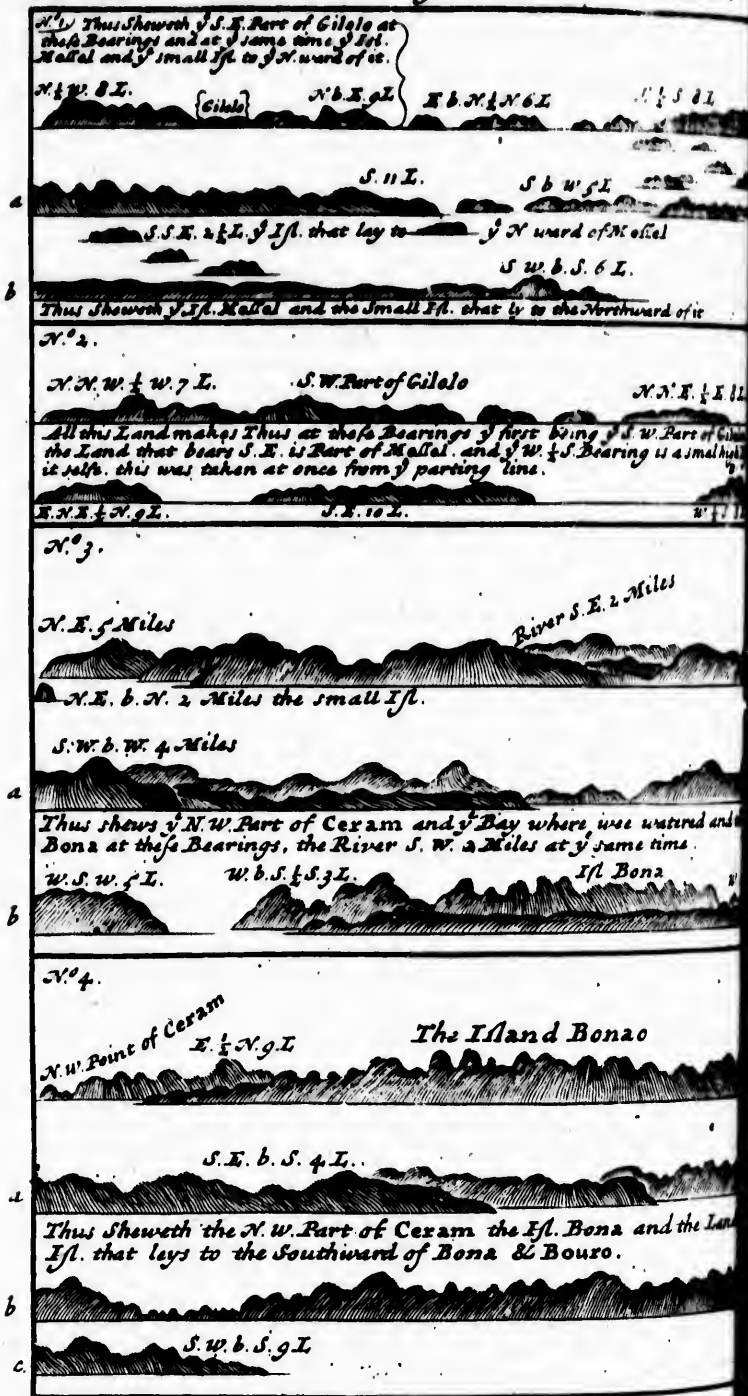 N.º 1. Thus Sheweth yᵉ S.E. Part of Gilolo at
theſe Bearings and at yᵉ same time yᵉ Iſl.
Meſſel and yᵉ small Iſl to yᵉ N.ward of it.
N.½W. 8 L. {Gilolo} N b. E. 9 L E b. N.½N. 6 L S 8 L
a S. 11 L. S b W 5 L
S.S.E. 2½L. yᵉ Iſl. that lay to yᵉ N ward of Meſſel
b S w. b. S. 6 L.
Thus Sheweth yᵉ Iſl. Meſſel and the Small Iſl. that ly to the Northward of it
N.º 2.
N.N.W.½ W. 7 L. S.W. Part of Gilolo N.N.E.½ E. 8 L
All this Land makes Thus at theſe Bearings yᵉ first being yᵉ S.W. Part of
the Land that bears S.E. is Part of Meſſel. and yᵉ W.½S. Bearing is a smal high
it selfe. this was taken at once from yᵉ parting line.
E.N.E.½N. 9 L. S.E. 10 L. W ½
N.º 3.
N.E. 5 Miles River S.E. 2 Miles
N.E. b. N. 2 Miles the small Iſl.
S.W. b. W. 4 Miles
a
Thus shews yᵉ N.W. Part of Ceram and yᵉ Bay where wee watered and
Bona at theſe Bearings, the River S. W. 2 Miles at yᵉ same time.
W. S. W. 5 L. W. b. S.½ S. 3 L. Iſl Bona W
b
N.º 4.
N.W. Point of Ceram E.½ N. 9 L The Iſland Bonao
S.E. b. S. 4 L.
a
Thus Sheweth the N.W. Part of Ceram the Iſl. Bona and the Land
Iſl. that leys to the Southward of Bona & Bouro.
b
c. S.W. b. S. 9 L